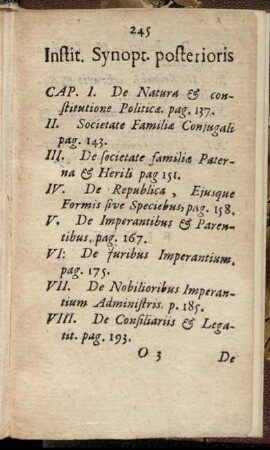 245
Instit. Synopt. posterioris
CAP. I. De Natura & con-
stitutione Politicæ. pag. 137.
II. Societate Familiæ Conjugali
pag. 143.
III. De societate familiæ Pater-
na & Herili pag 151.
IV. De Republica, Ejusque
Formis sive Speciebus, pag. 158.
V. De Imperantibus & Paren-
tibus, pag. 167.
VI: De Juribus Imperantium,
pag. 175.
VII. De Nobilioribus Imperan-
tium Administris. p. 185.
VIII. De Consiliariis & Lega-
tit. pag. 193.
O 3 De